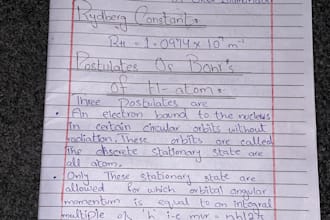 Rydberg Constant:
RH = 1.0974 x 10⁷ m⁻¹
Postulates Of Bohr's
Of H-atom:
Three Postulates are
• An electron bound to the nucleus
in certain circular orbits without
radiation. These orbits are called
the discrete stationary state are
all atom.
• Only These stationary state are
allowed for which orbital angular
momentum is equal to an integral
multiple of 'h' i-e mvr = nh/2π